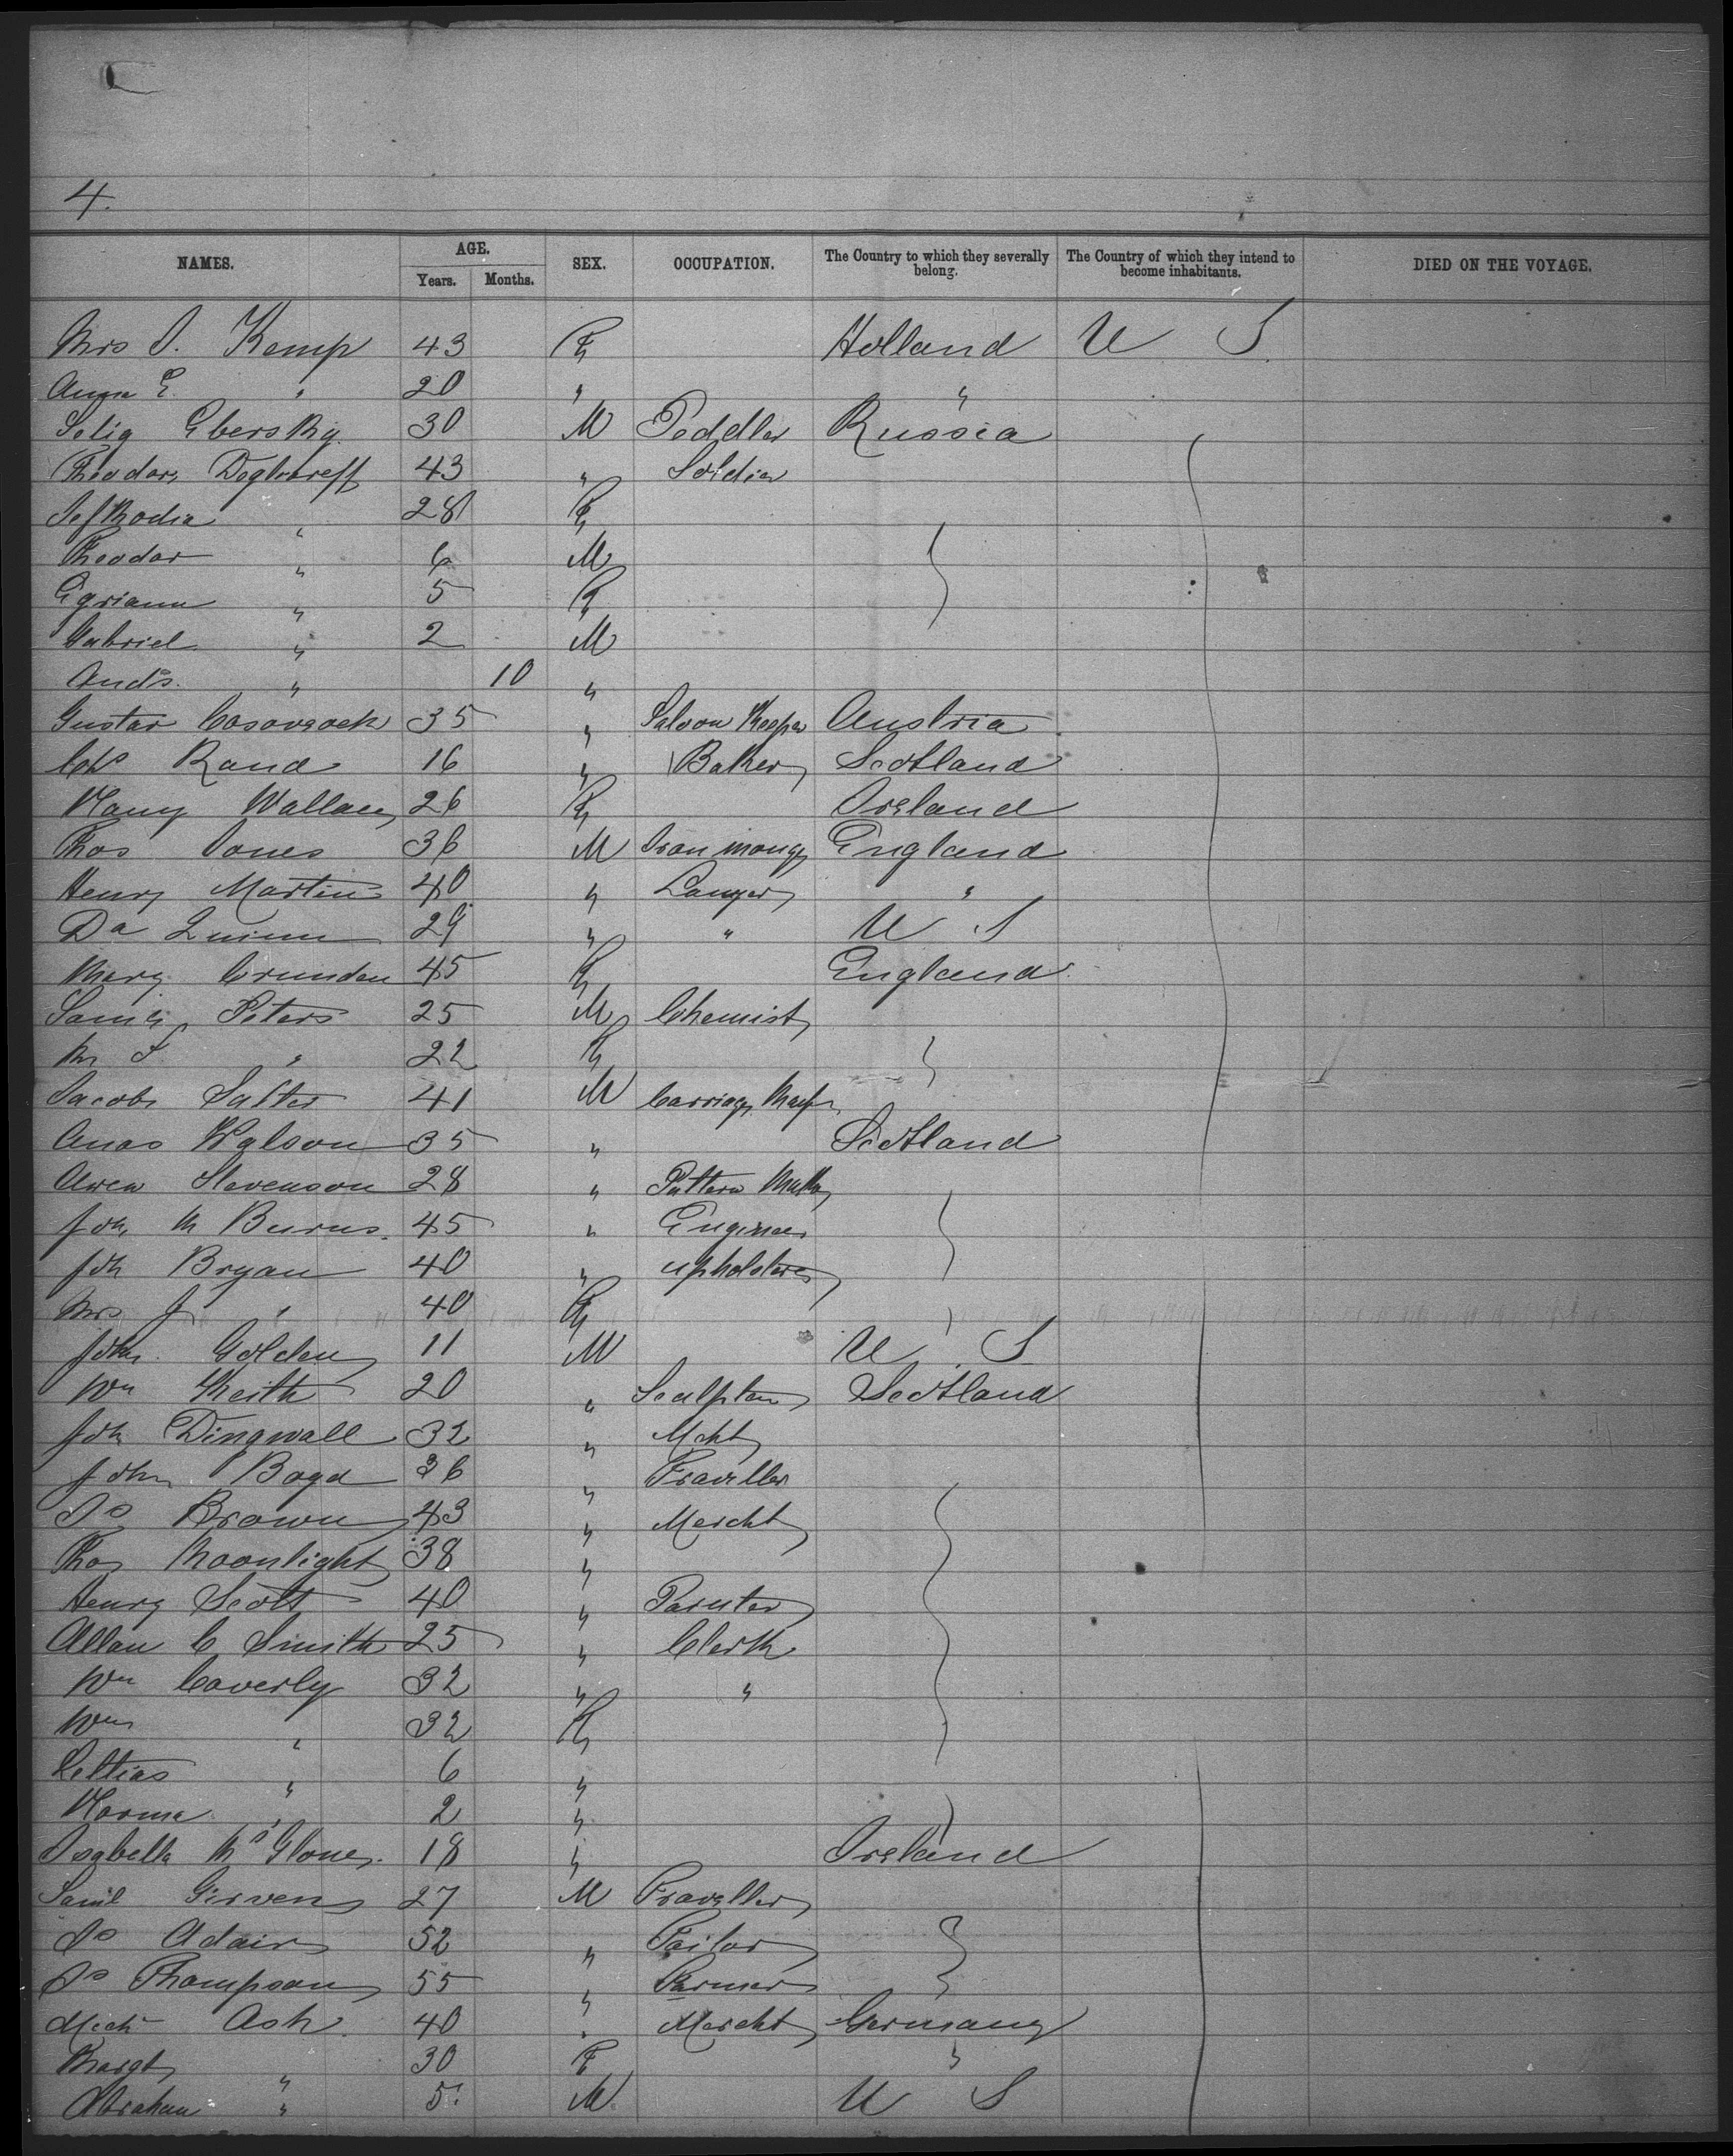 4.
NAMES. AGE. SEX. OCCUPATION. The Country to which they severally belong. The Country of which they intend to become inhabitants. DIED ON THE VOYAGE.
Years. Months.
Mrs J. Kemp 43 F Holland U S
Anna E. " 20 " "
Selig Ebersky 30 M Peddler Russia
Theodore 43 " Soldier
" 28 F
Theodor " 6 M
" 5 F
Gabriel " 2 M
Ands. " 10 "
Gustav 35 " Saloon Keeper Austria
Chs Rand 16 " Baker Scotland
Mary Wallace 26 F Ireland
Thos Jones 36 M Iron monger England
Henry Martin 40 " Lawyer "
Da Quinn 29 " " U S
Mary Crunden 45 F England
Saml Peters 25 M Chemist
" 22 F
Jacob Salter 41 M Carriage Manfr
Watson 35 " Scotland
Stevenson 28 " Pattern Maker
Joh M Burns. 45 " Engineer
Joh Bryan 40 " upholsterer
Mrs J " 40 F
John Golden 11 M U S
Wm Keith 20 " Sculptor Scotland
Joh Dingwall 32 " Mcht
John Boyd 36 " Traveller
Js Brown 43 " Mercht
Thos Moonlight 38 "
Henry Scott 40 " Painter
Allan C Smith 25 " Clerk
Wm Coverly 32 " "
Wm " 32 F
" 6 "
" 2 "
Isabella McGlone 18 " Ireland
Saml Girven 27 M Traveller
Js Adair 52 " Tailor
Js Thompson 55 " Farmer
Mich Ash. 40 " Mercht Germany
Margt " 30 F "
Abraham " 5 M U S